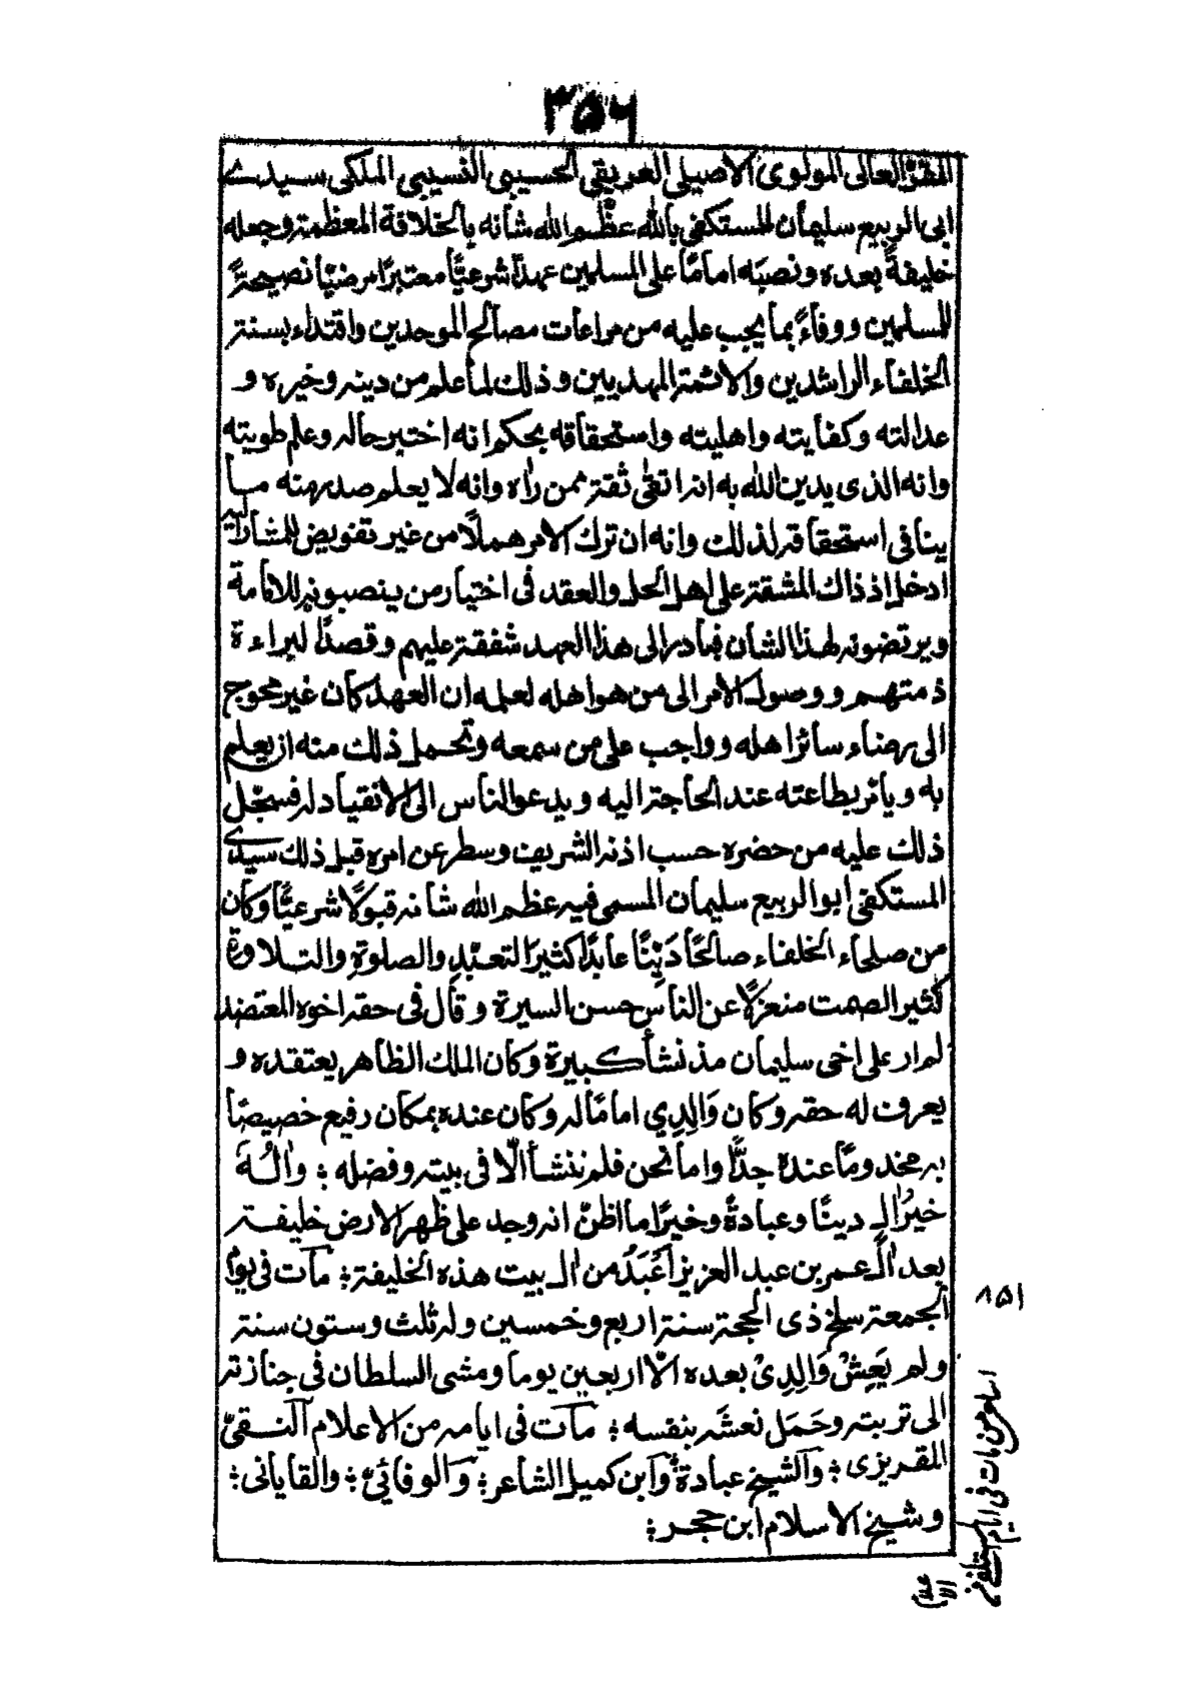 ٣٥٦
المقرّ العالى المولوى الاصيلى العريقى الحسيبى النسيبى الملكى سيدے
ابى الربيع سليمان المستكفى بالله عظّم الله شأنه بالخلافة المعظمة وجعله
خليفةً بعده ونصبَه امامًا على المسلمين عهدًا شرعيًّا معتبرًا مرضيًا نصيحةً
للمسلمين ووفاءً بما يجب عليه من مراعات مصالح الموحدين واقتداء بسنة
الخلفاء الراشدين والائمة المهديين وذلك لما علم من دينه وخيره و
عدالته وكفايته واهليته واستحقاقه بحكم انه اختبر حاله وعلم طويته
وانه الذى يدين الله به انه اتقىٰ ثقة ممن راٰه وانه لا يعلم صدر منه ما
ينافى استحقاقه لذلك وانه ان ترك الامر هملًا من غير تفويض للمشار اليه
ادخل اذ ذاك المشقة على اهل الحل والعقد فى اختيار من ينصبونه للامامة
ويرتضونه لهذا الشان فبادر الى هذا العهد شفقة عليهم وقصدًا لبراءة
ذمتهم ووصول الامر الى من هو اهله لعلمه ان العهد كان غير محوج
الى رضاء سائر اهله وواجب على من سمعه وتحمل ذلك منه ان يعلم
به ويأمر بطاعته عند الحاجة اليه ويدعو الناس الى الانقياد له فسجّل
ذلك عليه من حضره حسب اذنه الشريف وسطر عن امره قبل ذلك سيدى
المستكفى ابو الربيع سليمان المسمى فيه عظم الله شانه قبولًا شرعيًّا وكان
من صلحاء الخلفاء صالحًا دَيّنًا عابدًا كثير التعبّد والصلوة والتلاوة
كثير الصمت منعزلًا عن الناس حسن السيرة وقال فى حقه اخوه المعتضد
لم ار على اخى سليمان مذ نشأ كبيرة وكان الملك الظاهر يعتقده و
يعرف له حقه وكان وَالِدِي امامًا له وكان عنده بمكان رفيع خصيصًا
به مخدومًا عنده جدًّا واما نحن فلم ننشأ الّا فى بيته وفضله ؛ واٰلُهُ
خيرُ اٰل دينًا وعبادةً وخيرًا ما اظنّ انه وجد على ظهر الارض خليفة
بعد اٰل عمر بن عبد العزيز اَعْبَدُ من اٰل بيت هذه الخليفة ؛ مات فى يوم
الجمعة سلخ ذى الحجة سنة اربع وخمسين وله ثلث وستون سنة
ولم يَعِشْ وَالِدِىْ بعده الّا اربعين يوما ومشى السلطان فى جنازته
الى تربته وحَمَل نعشَه بنفسه ؛ مات فى ايامه من الاعلام التقىّ
المقريزى ؛ والشيخ عبادة ؛ وابن كميل الشاعر ؛ والوفائىّ ؛ والقاياتى ؛
وشيخ الاسلام ابن حجر ؛
٨٥١
اسامى من مات فى ايام المستكفى من
الاعلام